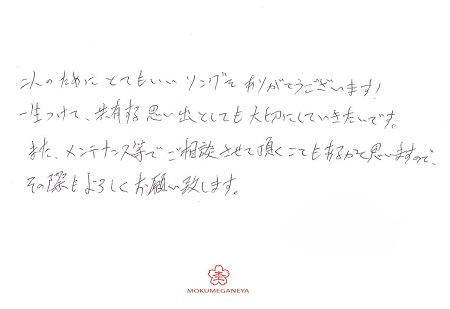 二人のために とてもいい リングを ありがとうございます!
一生つけて、共有する思い出としても大切にしていきたいです。
また、メンテナンス等でご相談させて頂くこともあるかと思いますので、
その際もよろしくお願い致します。
MOKUMEGANEYA